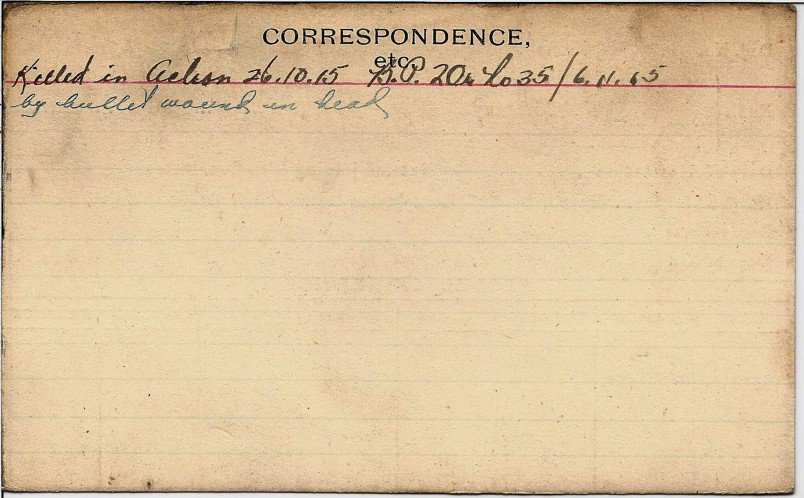 CORRESPONDENCE,
etc.
Killed in Action 26.10.15 B.P. 20 35/6.11.15
by bullet wound in head